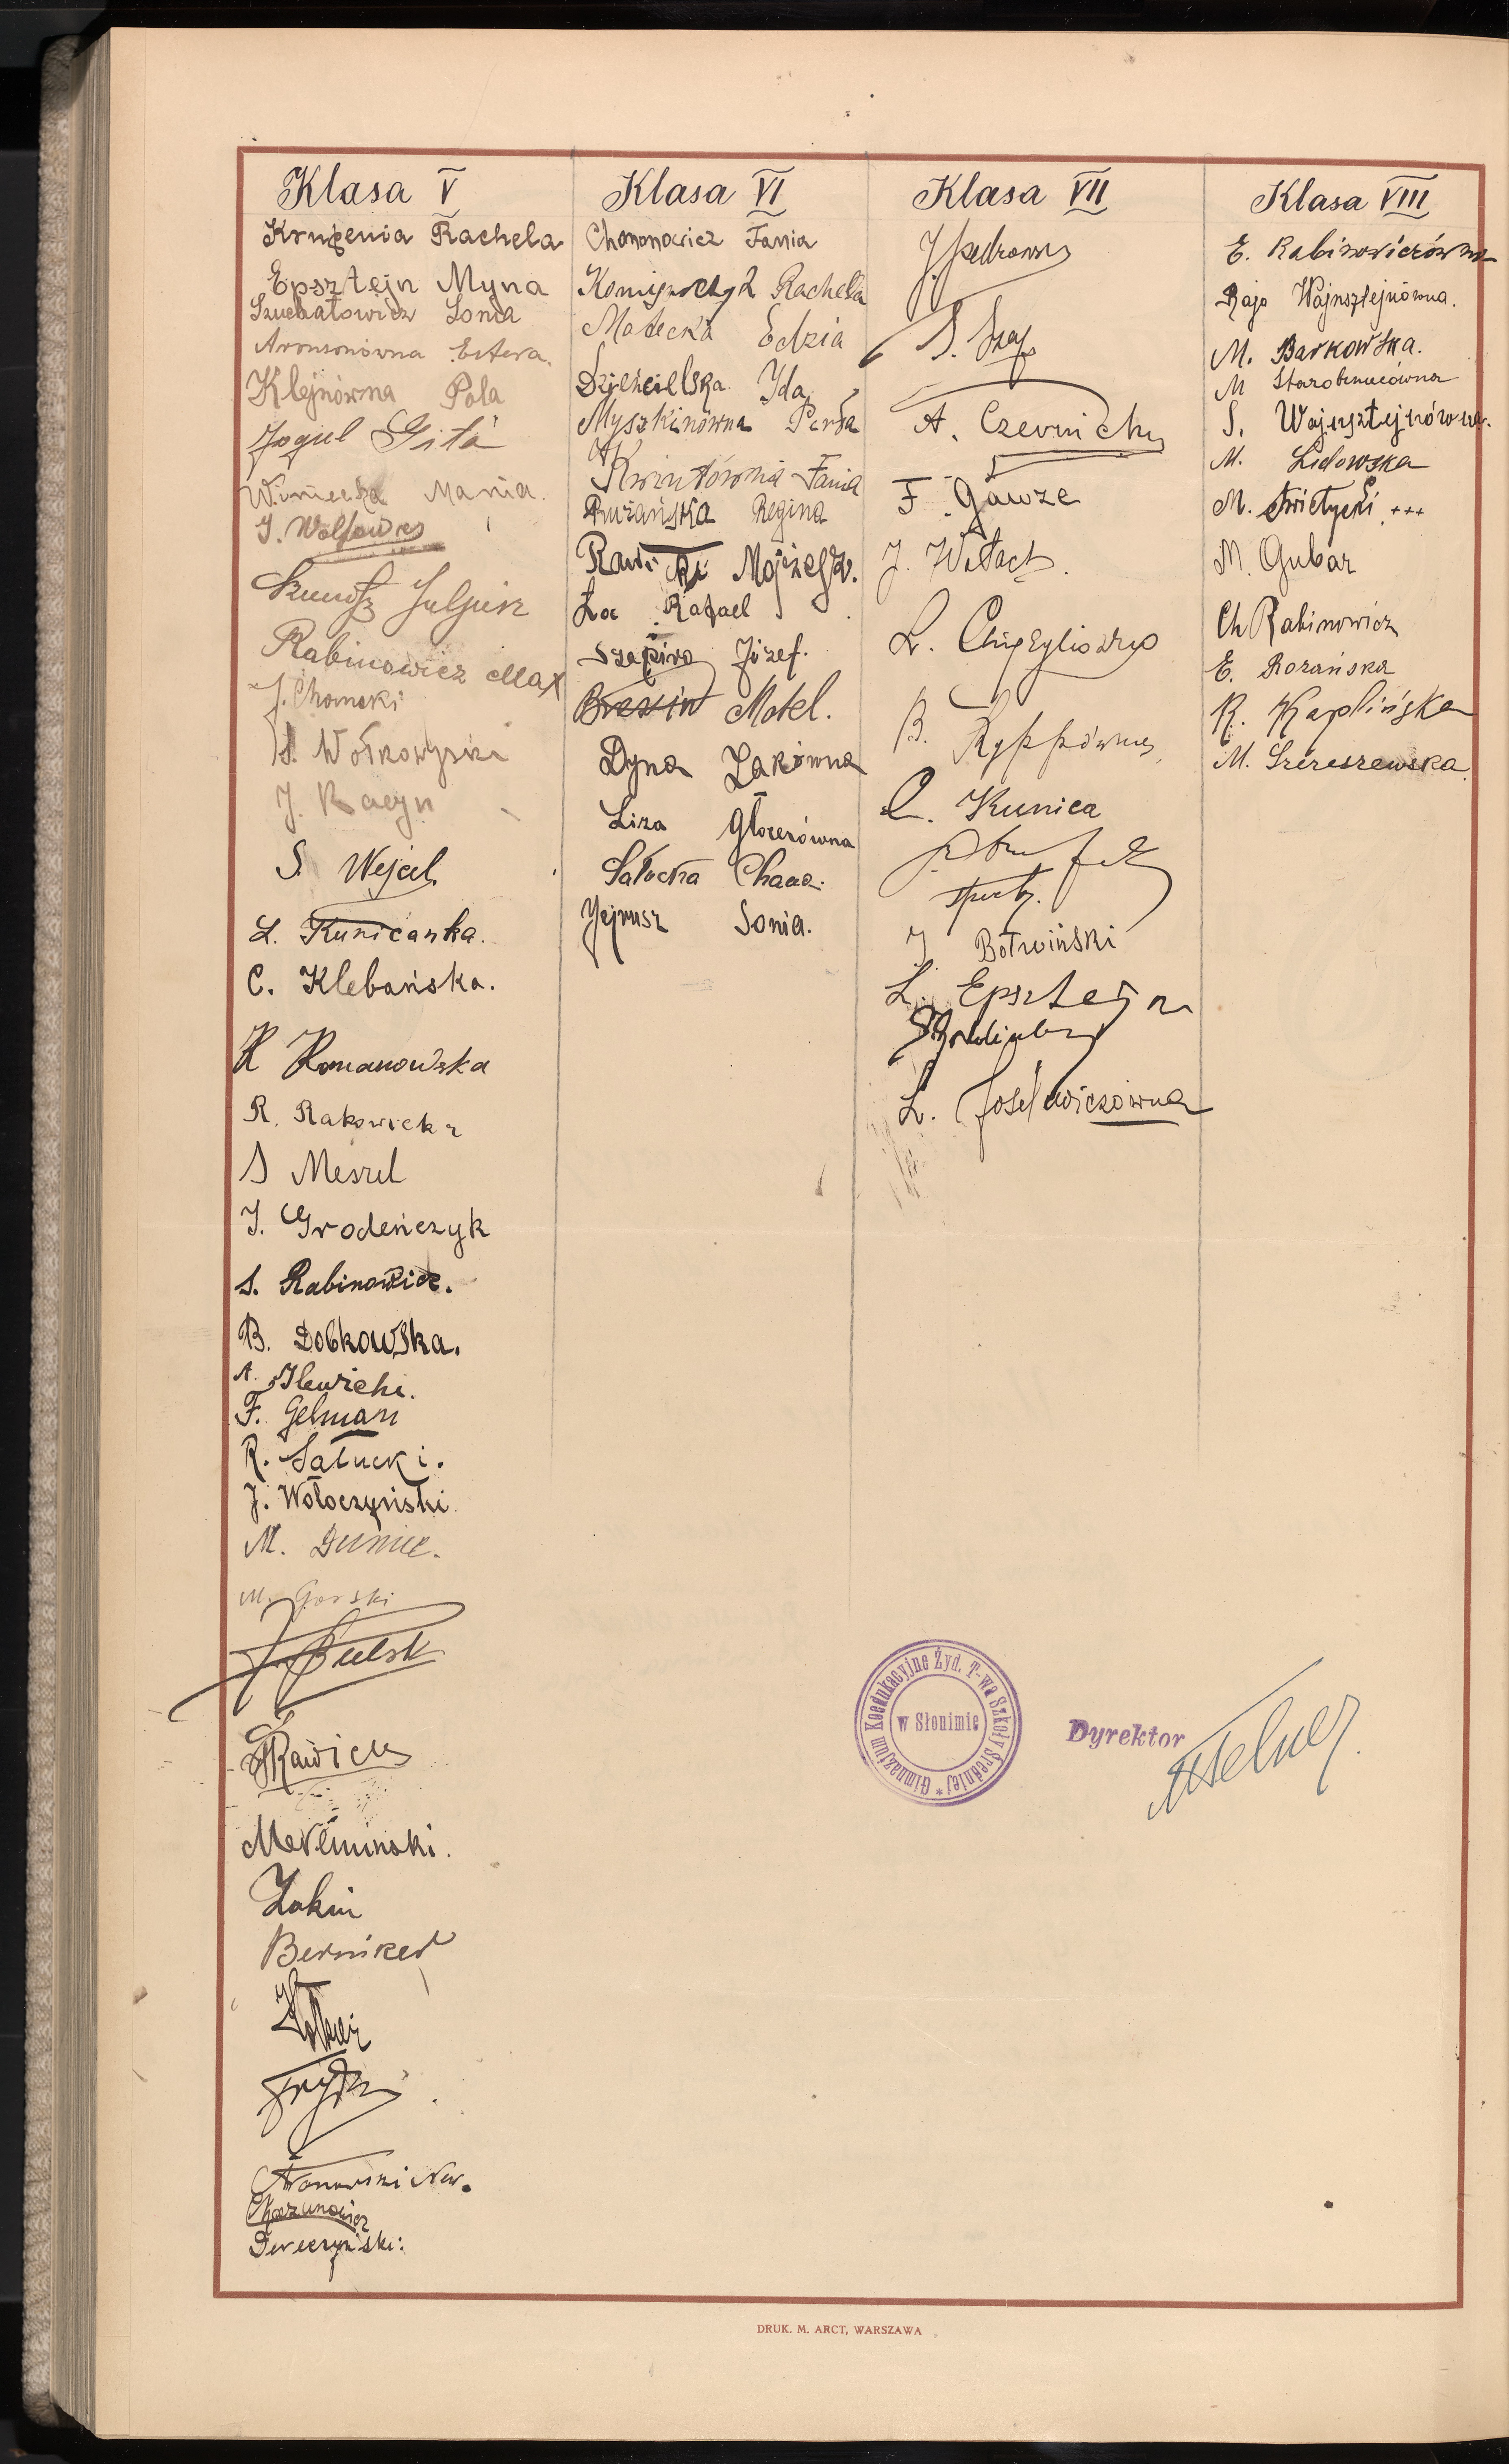 Klasa V
Krupenia Rachela
Epsztejn Myna
Szuchatowicz Sonia
Aronsonówna Estera.
Klejnówna Pola
Jogiel Gita
Winiecka Mania.
J. Wolfowicz
Juljusz
Rabinowicz Max
J. Chomski
S. Wołkowyski
J. Racyn
S. Wejcel
L. Kunicanka.
C. Klebańska.
R Romanowska
R. Rakowicka
S Meszel
J. Grodeńczyk
S. Rabinowicz.
B. Dobkowska.
A. Ilewicki.
F. Gelman
R. Satucki.
J. Wołoczyński
M. Duniec.
M. Gorski
J. Bulsk
Rawicki
Merliminski.
Zakin
Berniker
Now.
Chazanowicz
Dereczyński:
Klasa VI
Chononowicz Fania
Rachela
Małecka Edzia
Dzięcielska Ida
Myszkinówna Perła
Kwintówna Fania
Różańska Regina
Rawicki Mojżesz.
La Rafael
Szapiro Józef.
Brezin Motel.
Dyna Żakówna
Liza Głozerówna
Sałucka Chana.
Jejrusz Sonia.
Klasa VII
S. Szaf
A. Czernichów
F. Gawze
J. Witacz.
L.
B. Ryppówna
Kunica
J Botwiński
L. Epsztejn
L. Joselewiczówna
Klasa VIII
E. Rabinowiczówna
Raja Wajnsztejnówna.
M. Barkowska.
M
S. Wajnsztejnówna.
M. Lidowska
M. Świetycki +++
M. Gubar
Ch Rabinowicz
E. Rożańska
R. Kaplińska
M. Szereszewska.
Gimnazjum Koedukacyjne Żyd. T-wa Szkoły Średniej *
w Słonimie
Dyrektor
DRUK. M. ARCT, WARSZAWA